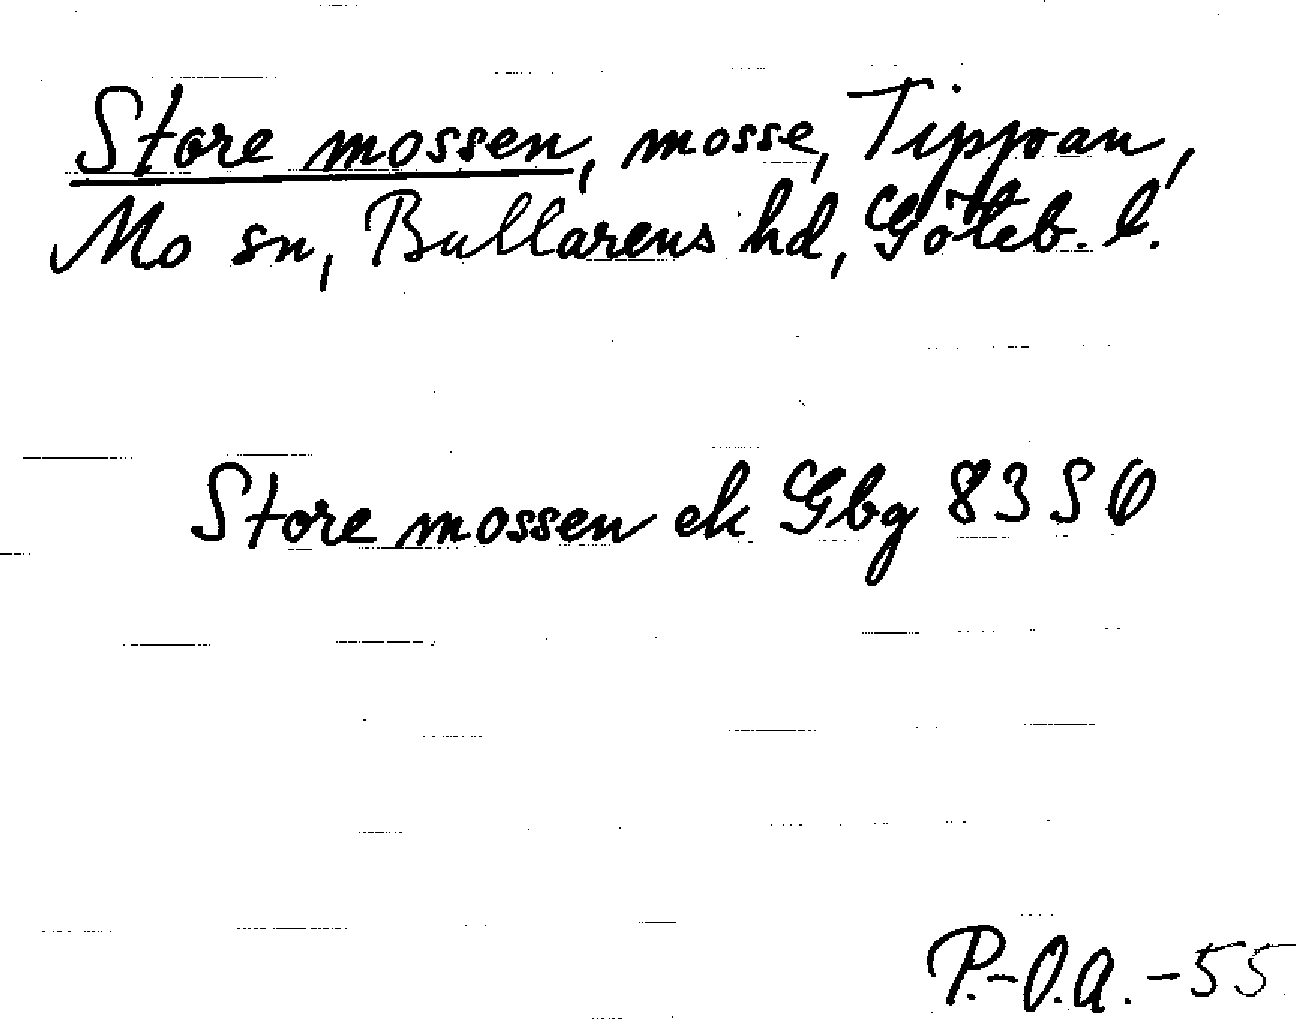 Store mossen, mosse, Tippoan,
Mo sn, Bullarens hd, Göteb. l.
Store mossen ek Gbg 8350
P.-O.A. -55